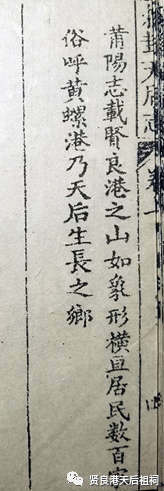 封天后志
卷
莆陽志載賢良港之山如象形橫亘居民數百
俗呼黃螺港乃天后生長之鄉
贤良港天后祖祠